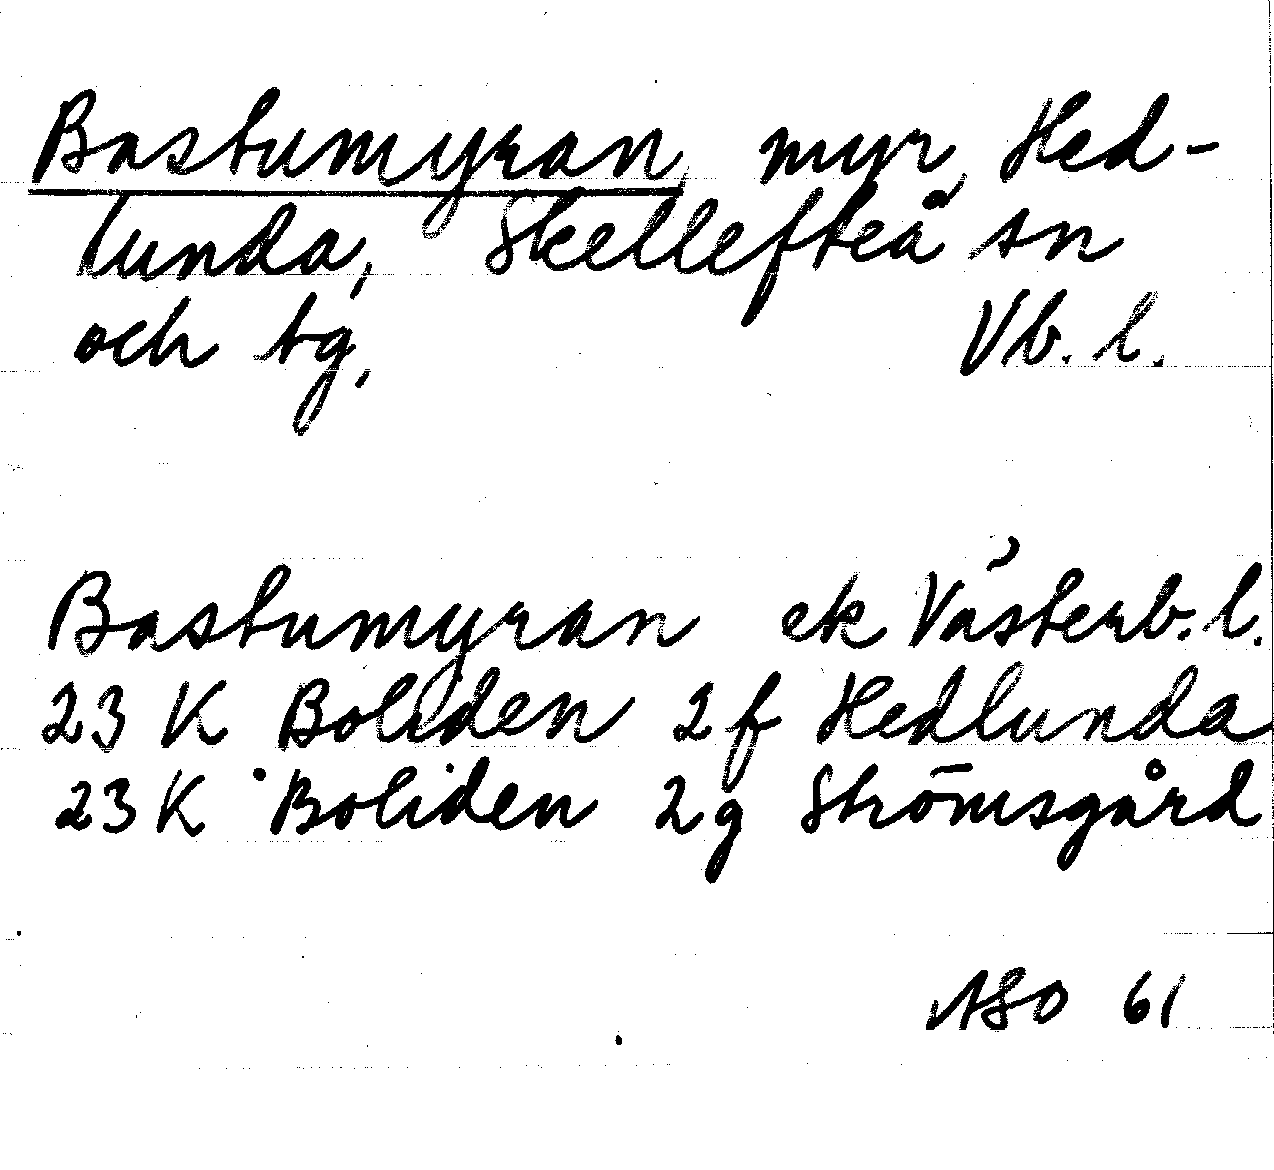 Bastumyran, myr, Hed-
lunda, Skellefteå sn
och tg, Vb. l.
Bastumyran ek Västerb. l.
23 K Boliden 2 f Hedlunda
23 K Boliden 2 g Strömsgård
ASO 61